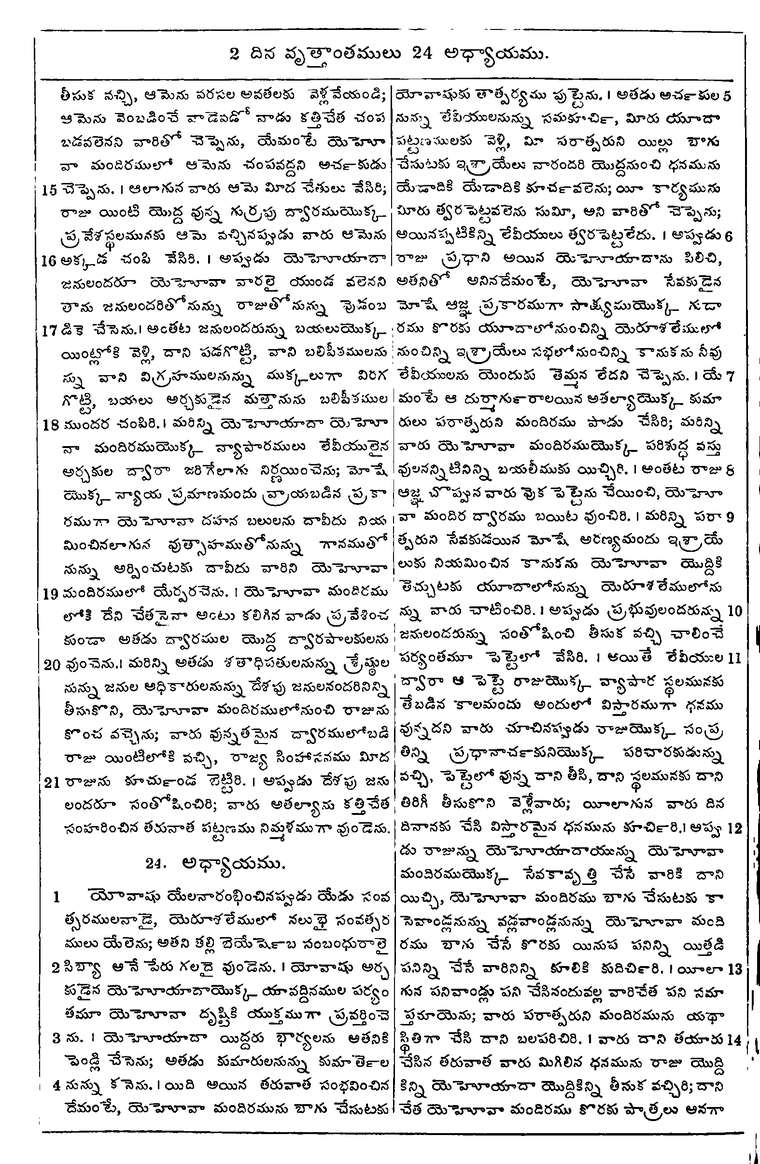 2 దిన వృత్తాంతములు 24 అధ్యాయము.
తీసుక నచ్చి, ఆమెను వరసల అవతలకు వెళ్లవేయండి;
ఆమెను వెంబడించే వాడెవడో వాడు కత్తిచేత చంప
బడవలెనని వారితో చెప్పెను, యేమంటే యెహోు
వా మందిరములో ఆమెను చంపవద్దని అర్చకుడు
15 చెప్పెను. । ఆలాగున వారు ఆమె మీద చేతులు వేసిరి;
రాజు యింటి యొద్ద వున్న గుర్రపు ద్వారముయొక్క
ప్రవేశస్థలమునకు ఆమె వచ్చినప్పుడు వారు ఆమెను
16 అక్కడ చంపి వేసిరి. । అప్పుడు యెహోయాదా
జనులందరూ యెహోవా వారలై యుండ వలెనని
తాను జనులందరితోనున్ను రాజుతోనున్ను వుడంబ
17 డికె చేసెను.। అంతట జనులందరున్ను బయలుయొక్క
యింట్లోకి వెళ్లి, దాని పడగొట్టి, వాని బలిపీఠములను
న్ను వాని విగ్రహములనున్ను ముక్కలుగా విరగ
గొట్టి, బయలు అర్చకుడైన మత్తానును బలిపీఠముల
18 ముందర చంపిరి. । మరిన్ని యెహోయాదా యెహో
వా మందిరముయొక్క వ్యాపారములు లేవీయులైన
అర్చకుల ద్వారా జరిగేలాగు నిర్ణయించెను; మోషే
యొక్క న్యాయ ప్రమాణమందు వ్రాయబడిన ప్రకా
రముగా యెహోవా దహన బలులను దావీదు నియ
మించినలాగున వుత్సాహముతోనున్ను గానముతో
నున్ను అర్పించుటకు దావీదు వారిని యెహోవా
19 మందిరములో యేర్పరచెను. । యెహోవా మందిరము
లోకి దేని చేతనైనా అంటు కలిగిన వాడు ప్రవేశించ
కుండా అతడు ద్వారముల యొద్ద ద్వారపాలకులను
20 వుంచెను.। మరిన్ని అతడు శతాధిపతులనున్ను శ్రేష్ఠుల
నున్ను జనుల అధికారులనున్ను దేశపు జనులనందరినిన్ని
తీసుకొని, యెహోవా మందిరములోనుంచి రాజును
కొంచ వచ్చెను; వారు వున్నతమైన ద్వారములోబడి
రాజు యింటిలోకి వచ్చి, రాజ్య సింహాసనము మీద
21 రాజును కూర్చుండ బెట్టిరి. । అప్పుడు దేశపు జను
లందరూ సంతోషించిరి; వారు అతల్యాను కత్తిచేత
సంహరించిన తరువాత పట్టణము నిమ్మళముగా వుండెను.
24. అధ్యాయము.
1 యోవాషు యేలనారంభించినప్పుడు యేడు సంవ
త్సరములవాడై, యెరూశలేములో నలుభై సంవత్సర
ములు యేలెను; అతని తల్లి బెయేర్షెబ సంబంధురాలై
2 సిబ్యా అనే పేరు గలదై వుండెను. । యోవాషు అర్చ
కుడైన యెహోయాదాయొక్క యావద్దినముల పర్యం
తమూ యెహోవా దృష్టికి యుక్తముగా ప్రవర్తించె
3 ను. । యెహోయాదా యిద్దరు భార్యలను అతనికి
పెండ్లి చేసెను; అతడు కుమారులనున్ను కుమార్తెల
4 నున్ను కనెను. । యిది అయిన తరువాత సంభవించిన
దేమంటే, యెహోవా మందిరమును బాగు చేసుటకు
యోవాషుకు తాత్పర్యము పుట్టెను. । అతడు అర్చకుల 5
నున్ను లేవీయులనున్ను సమకూర్చి, మీరు యూదా
పట్టణములకు వెళ్లి, మీ పరాత్పరుని యిల్లు బాగు
చేసుటకు ఇశ్రాయేలు వారందరి యొద్దనుంచి ధనమును
యేడాదికి యేడాదికి కూర్చవలెను; యీ కార్యమును
మీరు త్వరపెట్టవలెను సుమీ, అని వారితో చెప్పెను;
అయినప్పటికిన్ని లేవీయులు త్వరపెట్టలేదు. । అప్పుడు 6
రాజు ప్రధాని అయిన యెహోయాదాను పిలిచి,
అతనితో అనినదేమంటే, యెహోవా సేవకుడైన
మోషే ఆజ్ఞ ప్రకారముగా సాక్ష్యముయొక్క గుడా
రము కొరకు యూదాలోనుంచిన్ని యెరూశలేములో
నుంచిన్ని ఇశ్రాయేలు సభలోనుంచిన్ని కానుకను నీవు
లేవీయులను యెందుకు తెమ్మన లేదని చెప్పెను. । యే 7
మంటే ఆ దుర్మార్గురాలయిన అతల్యాయొక్క కుమా
రులు పరాత్పరుని మందిరము పాడు చేసిరి; మరిన్ని
వారు యెహోవా మందిరముయొక్క పరిశుద్ధ వస్తు
వులనన్నిటినిన్ని బయలీముకు యిచ్చిరి. । అంతట రాజు 8
ఆజ్ఞ చొప్పున వారు వొక పెట్టెను చేయించి, యెహో
వా మందిర ద్వారము బయిట వుంచిరి. । మరిన్ని పరా 9
త్పరుని సేవకుడయిన మోషే అరణ్యమందు ఇశ్రాయే
లుకు నియమించిన కానుకను యెహోవా యొద్దికి
తెచ్చుటకు యూదాలోనున్ను యెరూశలేములోను
న్ను వారు చాటించిరి. । అప్పుడు ప్రభువులందరున్ను 10
జనులందరున్ను సంతోషించి తీసుక వచ్చి చాలించే
పర్యంతమూ పెట్టెలో వేసిరి. । అయితే లేవీయుల 11
ద్వారా ఆ పెట్టె రాజుయొక్క వ్యాపార స్థలమునకు
తేబడిన కాలమందు అందులో విస్తారముగా ధనము
వున్నదని వారు చూచినప్పుడు రాజుయొక్క సంప్ర
తిన్ని ప్రధానార్చకునియొక్క పరిచారకుడున్ను
వచ్చి, పెట్టెలో వున్న దాని తీసి, దాని స్థలమునకు దాని
తిరిగీ తీసుకొని వెళ్లేవారు; యీలాగున వారు దిన
దినానకు చేసి విస్తారమైన ధనమును కూర్చిరి.। అప్పు 12
డు రాజున్ను యెహోయాదాయున్ను యెహోవా
మందిరముయొక్క సేవకావృత్తి చేసే వారికి దాని
యిచ్చి, యెహోవా మందిరము బాగు చేసుటకు కా
సెవాండ్లనున్ను వడ్లవాండ్లనున్ను యెహోవా మంది
రము బాగు చేసే కొరకు యినుప పనిన్ని యిత్తడి
పనిన్ని చేసే వారినిన్ని కూలికి కుదిర్చిరి. । యీలా 13
గున పనివాండ్లు పని చేసినందువల్ల వారిచేత పని సమా
ప్తమాయెను; వారు పరాత్పరుని మందిరమును యథా
స్థితిగా చేసి దాని బలపరిచిరి. । వారు దాని తయారు 14
చేసిన తరువాత వారు మిగిలిన ధనమును రాజు యొద్ది
కిన్ని యెహోయాదా యొద్దికిన్ని తీసుక వచ్చిరి; దాని
చేత యెహోవా మందిరము కొరకు పాత్రలు అనగా